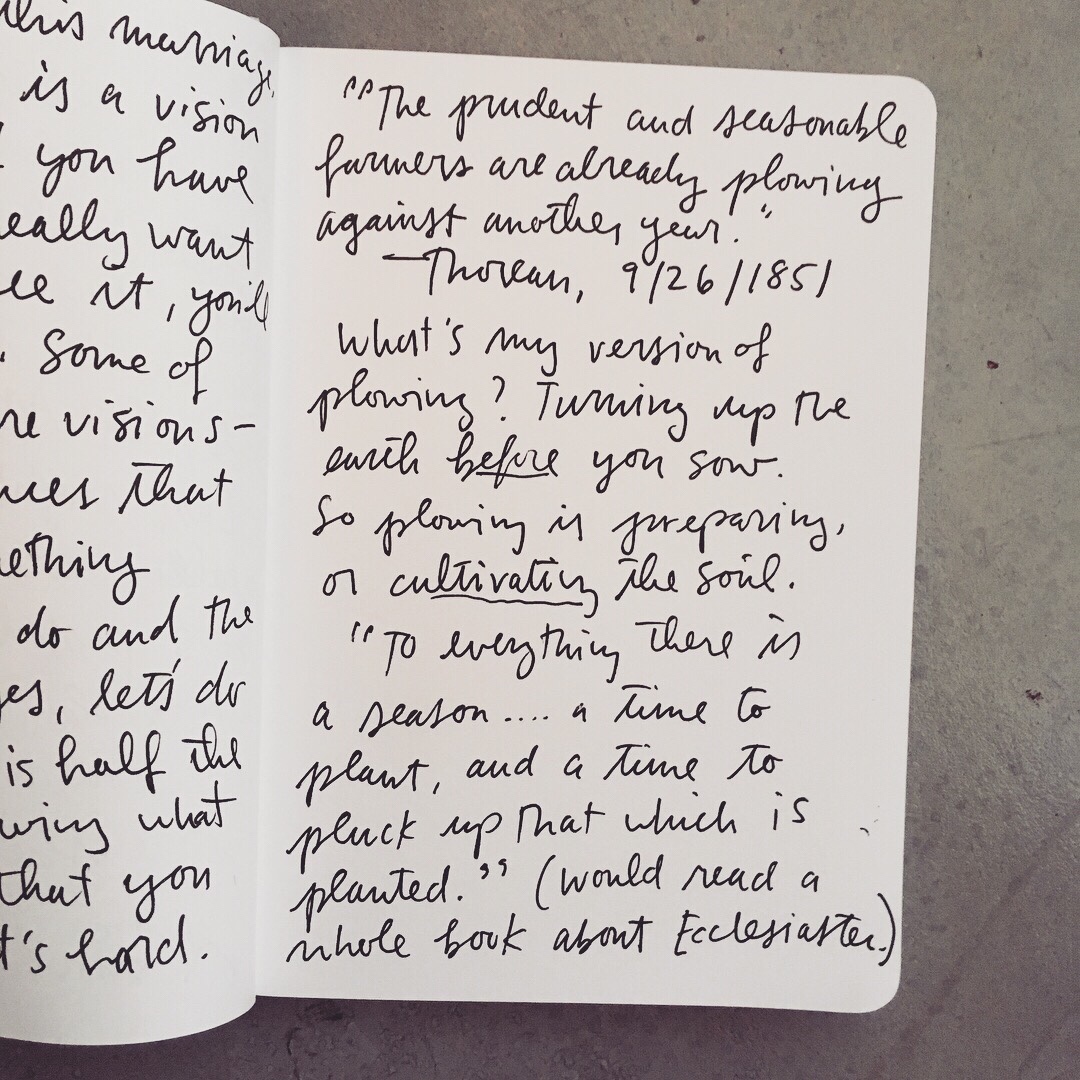 this marriage,
is a vision
you have
really want
see it, you'll
. Some of
are visions-
that
mething
do and the
yes, let's do
is half the
wing what
that you
t's hard.
"The prudent and seasonable
farmers are already plowing
against another year."
—Thoreau, 9/26/1851
What's my version of
plowing? Turning up the
earth before you sow.
So plowing is preparing,
or cultivating the soil.
"To everything there is
a season.... a time to
plant, and a time to
pluck up that which is
planted." (Would read a
whole book about Ecclesiastes.)